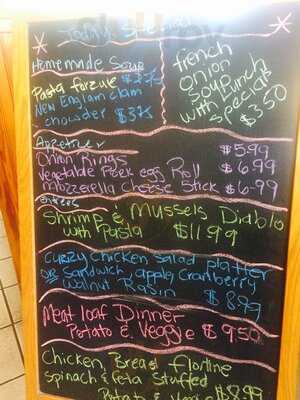 Today Specials
Homemade Soup
Pasta Fargule $3.75
New England clam
chowder $3.75
french
onion
soup Lunch
with specials
$3.50
Appetizer
Onion Rings $5.99
Vegetable Pork egg Roll $6.99
Mozzerella Cheese Stick $6.99
Entrees
Shrimp & Mussels Diablo
with Pasta $11.99
Curry Chicken Salad platter
OR Sandwich, apple, Cranberry
Walnut Rasin $8.99
Meat loaf Dinner
Potato & Veggie $9.50
Chicken Breast flortine
Spinach & feta Stuffed
Potato & Veggie $8.99